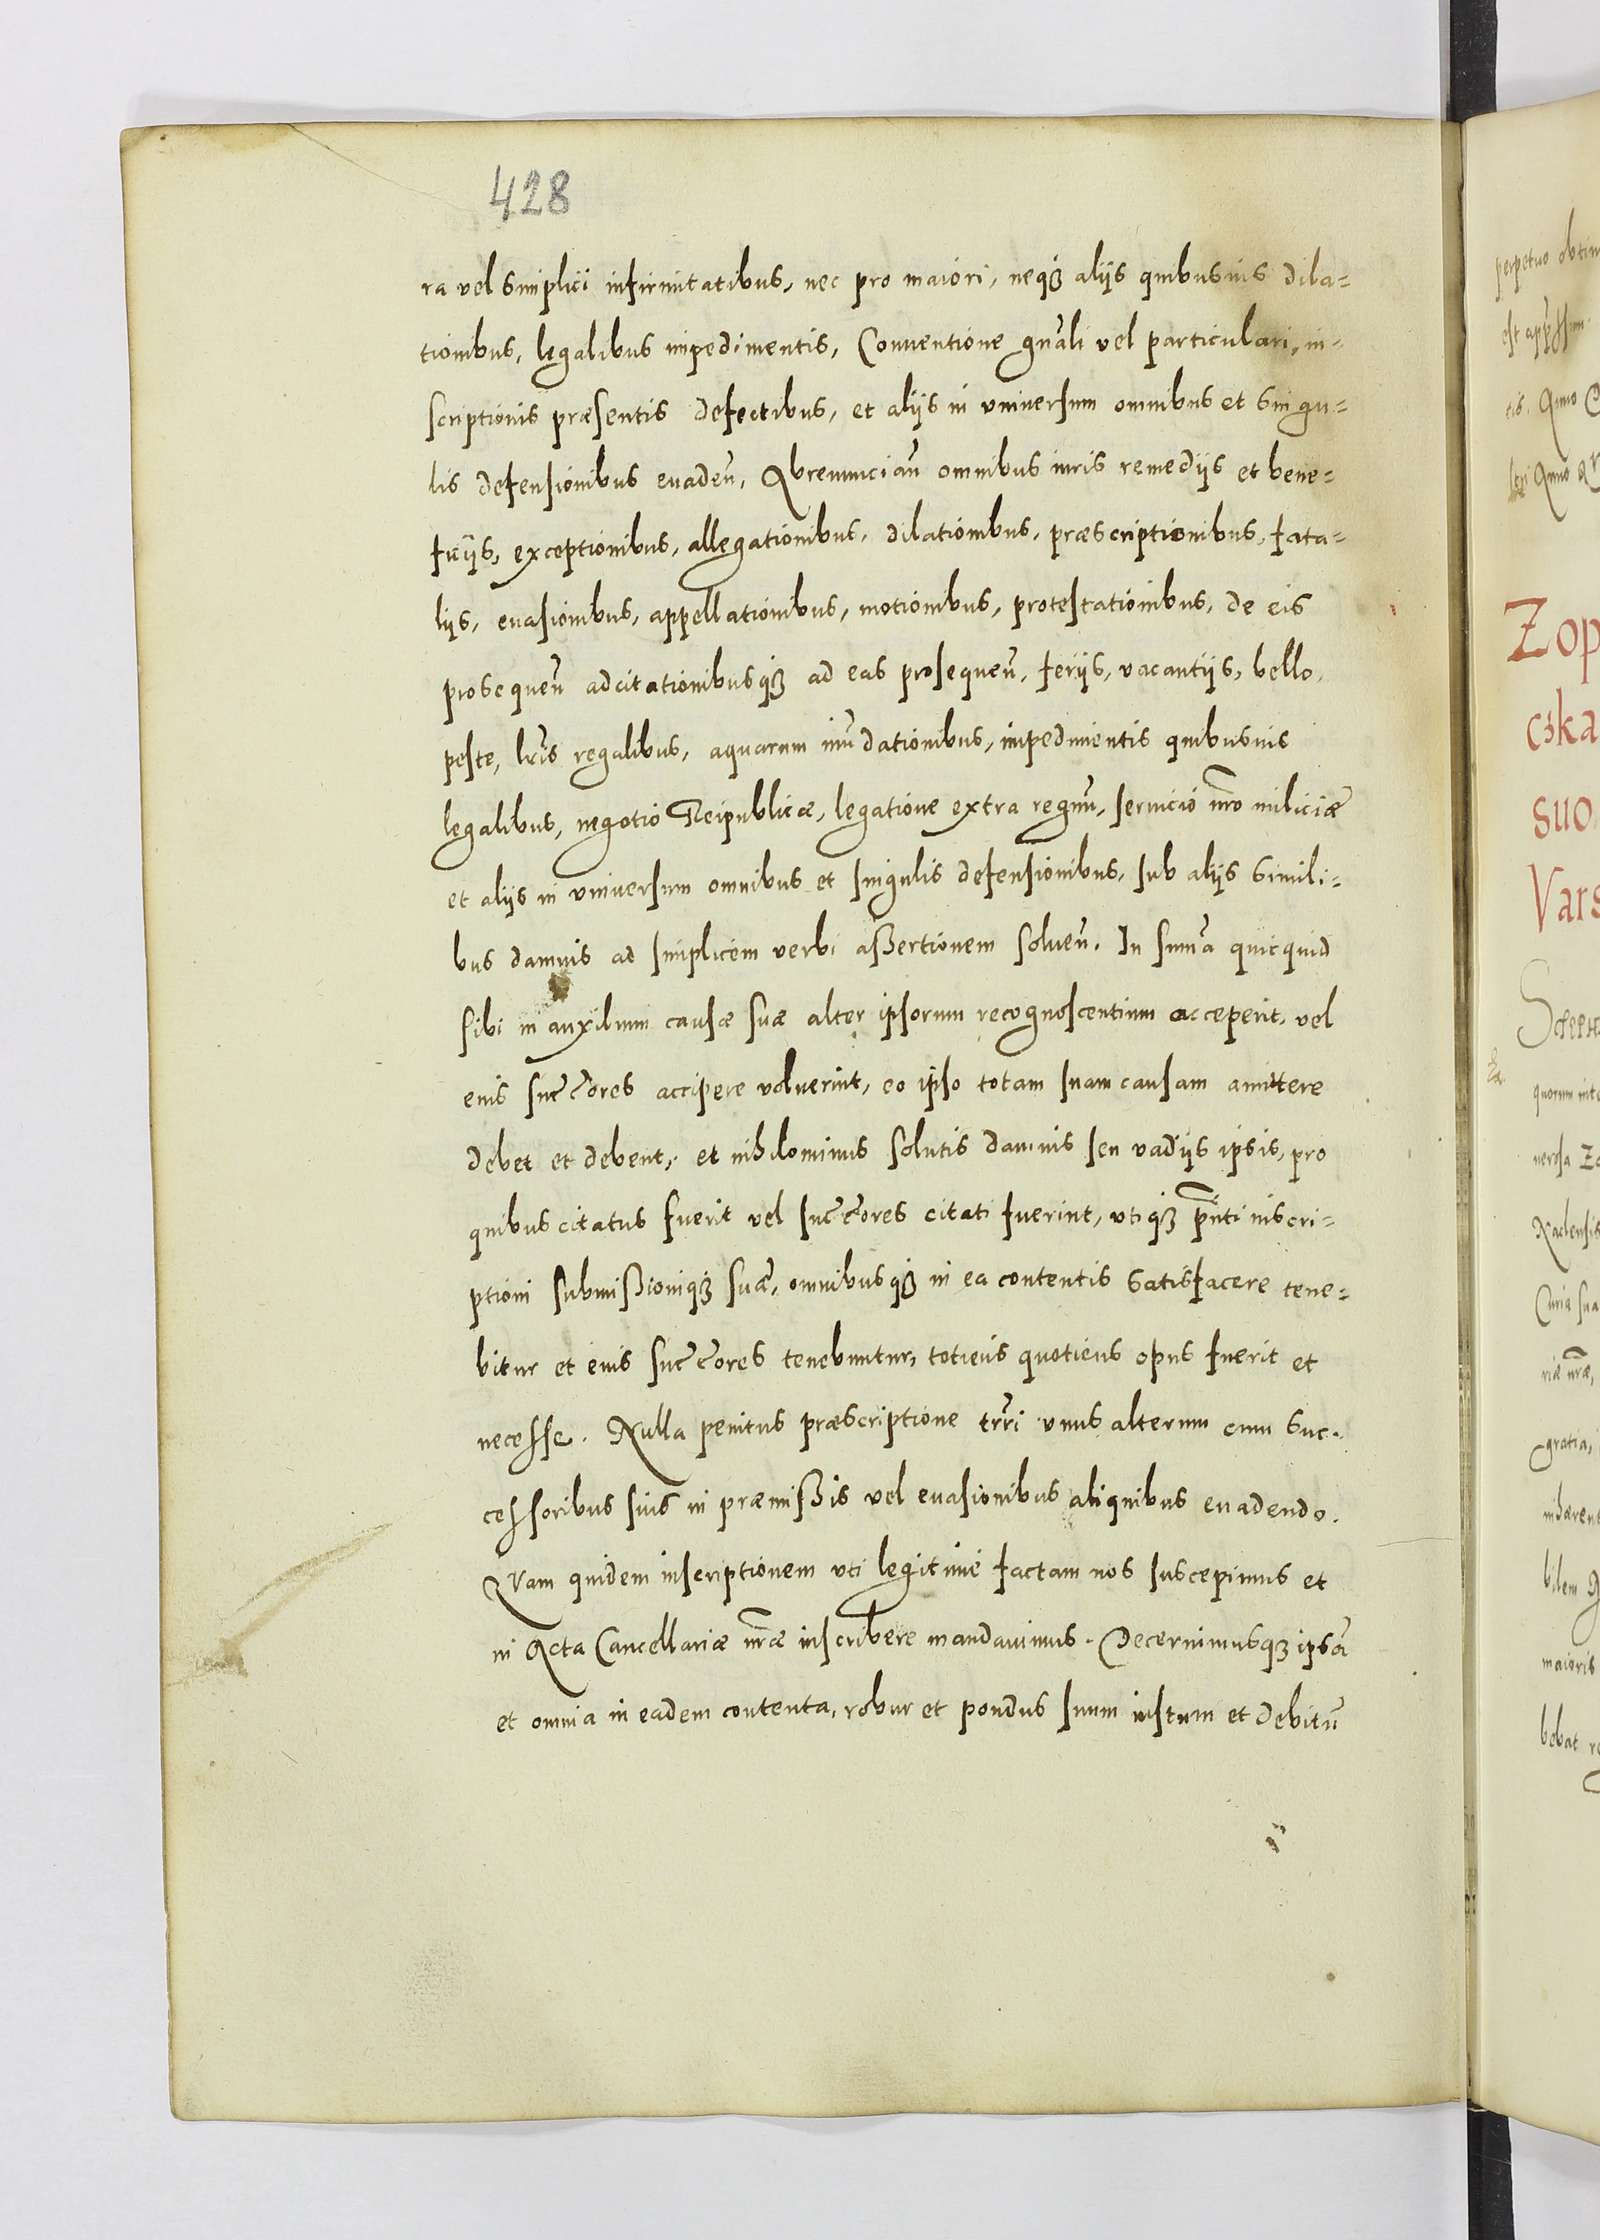 428
ra vel simplici infirmitatibus, nec pro maiori, neqȝ alijs quibusuis dila=
tionibus, legalibus impedimentis, Conuentione gnāli vel particulari, in=
scriptionis præsentis defectibus, et alijs in vniuersum omnibus et singu=
lis defensionibus euadeñ, Abrenunciañ omnibus iuris remedijs et bene=
ficijs, exceptionibus, allegationibus, dilationibus, præscriptionibus, fata=
lijs, euasionibus, appellationibus, motionibus, protestationibus, de eis
prosequeñ adcitationibusqȝ ad eas prosequeñ, ferijs, vacantijs, bello,
peste, lrīs regalibus, aquarum inūdationibus, impedimentis quibusuis
legalibus, negotio Reipublicæ, legatione extra regnū, seruicio nrō miliciæ
et alijs in vniuersum omnibus et singulis defensionibus, sub alijs simili=
bus damnis ad simplicem verbi aßertionem solueñ. In sum̄a quicquid
sibi in auxilium causæ suæ alter ipsorum recognoscentium acceperit, vel
eius succ̄ores accipere voluerint, eo ipso totam suam causam amittere
debet et debent, et nihilominus solutis damnis seu vadijs ipsis, pro
quibus citatus fuerit vel succ̄ores citati fuerint, vtiqȝ pn̄ti inscri=
ptioni submißioniqȝ suæ, omnibusqȝ in ea contentis satisfacere tene=
bitur et eius succ̄ores tenebuntur, totiens quotiens opus fuerit et
necesse. Nulla penitus præscriptione trrī vnus alterum cum suc=
cessoribus suis in præmißis vel euasionibus aliquibus euadendo.
Quam quidem inscriptionem vti legitime factam nos suscepimus et
in Acta Cancellariæ nr̄æ inscribere mandauimus. Decernimusqȝ ipsā
et omnia in eadem contenta, robur et pondus suum iustum et debitū
perpetuo
tis. Anno
Anno
Zop
cska
suo
Vars
quorum
Curia
riæ nr̄æ,
gratia,
bilem
maioris
bebat